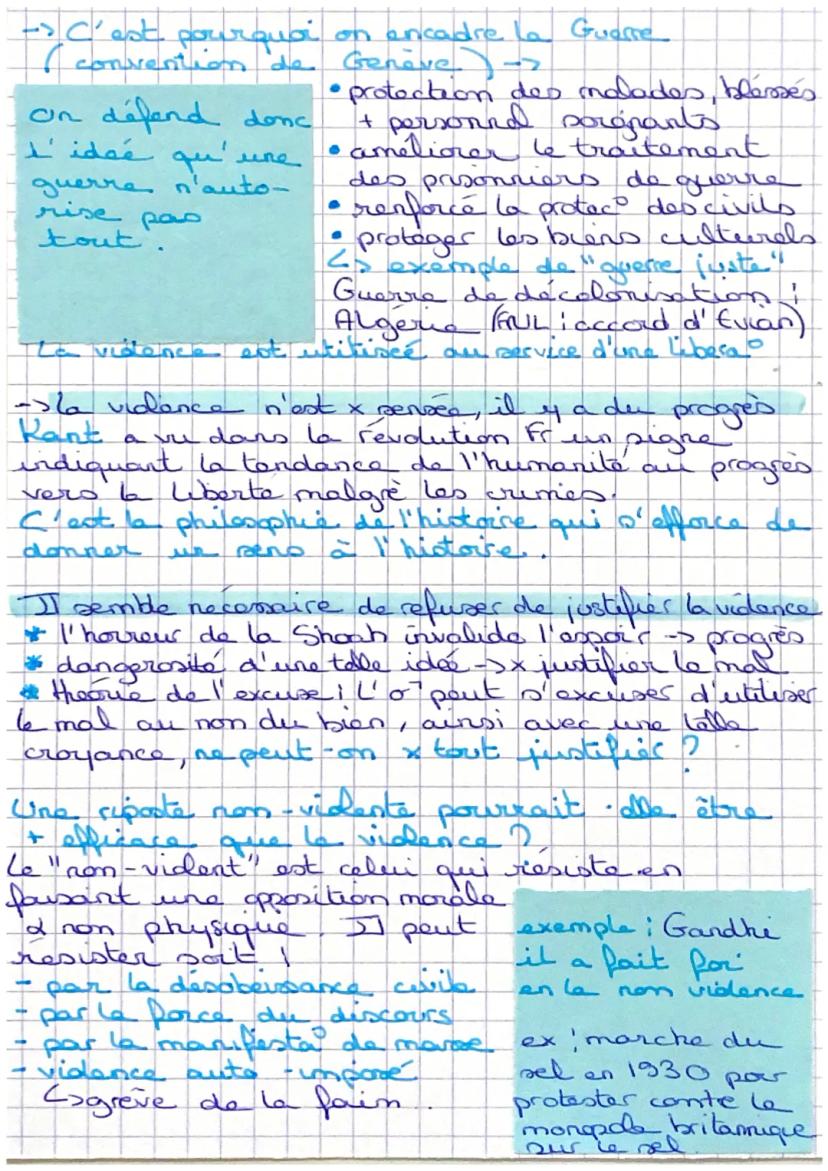 -> C'est pourquoi on encadre la Guerre
(convention de Genève) ->
On défend donc
l'ideé qu'une
guerre n'auto-
rise pas
tout.
• protection des malades, bléssés
+ personnel soignants
• améliorer le traitement
des prisonniers de guerre
• renforcé la protec° des civils
• protéger les biens culturels
↳ exemple de "guerre juste"
Guerre de décolonisation :
Algérie (FNL : accord d'Evian)
La violence est utilisée au service d'une libera°
-> la violence n'est x sensée, il y a du progrès
Kant a vu dans la révolution Fr un signe
indiquant la tendance de l'humanité au progrès
vers la liberté malgré les crimes.
C'est la philosophie de l'histoire qui s'efforce de
donner un sens à l'histoire.
Il semble nécessaire de refuser de justifier la violence
* l'horreur de la Shoah invalide l'espoir -> progrès
* dangerosité d'une telle idée -> x justifier le mal
* théorie de l'excuse : L' peut s'excuser d'utiliser
le mal au non du bien, ainsi avec une telle
croyance, ne peut-on x tout justifier ?
Une riposte non-violente pourrait-elle être
+ efficace que la violence ?
Le "non-violent" est celui qui résiste en
faisant une opposition morale
& non physique. Il peut
résister soit :
- par la désobéissance civile
- par la force du discours
- par la manifesta° de masse
- violence auto-imposé
↳ grève de la faim.
exemple : Gandhi
il a fait foi
en la non violence
ex : marche du
sel en 1930 pour
protester contre le
monopole britannique
sur le sel